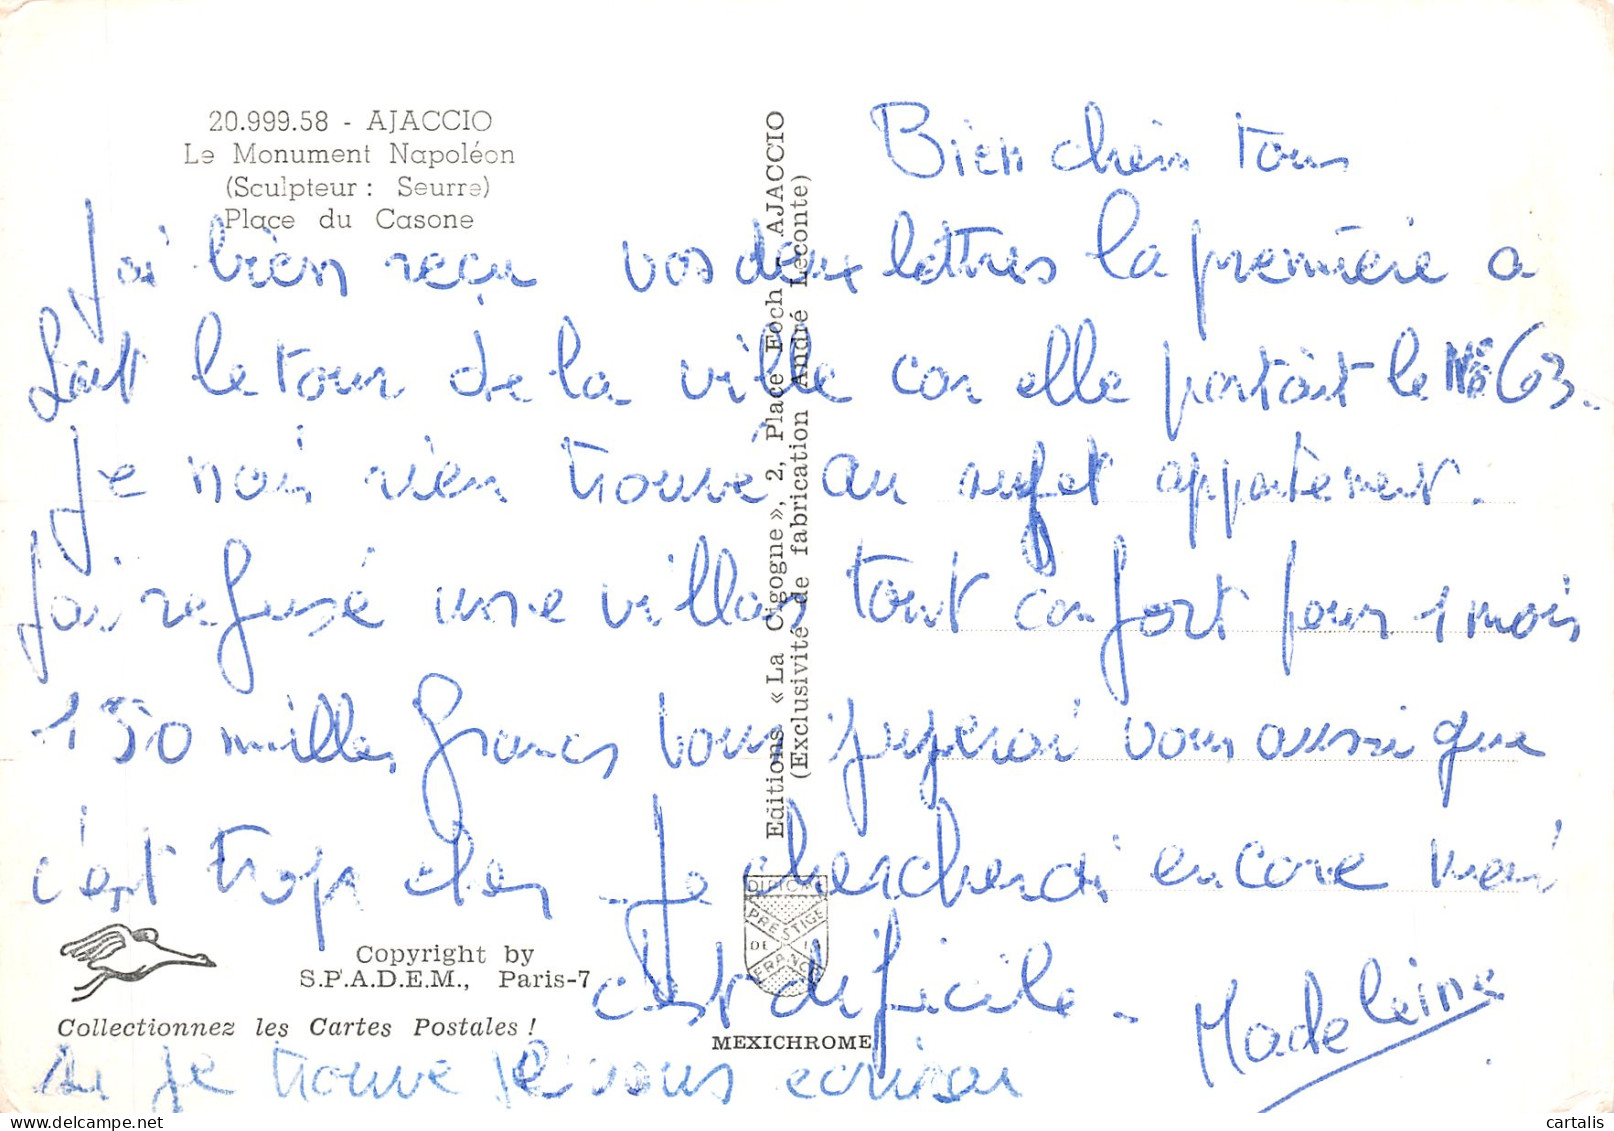 20.999.58 - AJACCIO
Le Monument Napoléon
(Sculpteur : Seurre)
Place du Casone
Bien chers tous
J'ai bien reçu vos deux lettres la première a
fait le tour de la ville car elle portait le N° 63.
Je n'ai rien trouvé au sujet appartement.
J'ai refusé une villas tout confort pour 1 mois
150 milles francs vous jugerai vous aussi que
c'est trop cher. Je chercherai encore mai
c'est dificile - Madeleine
Si je trouve je vous ecrirai
Editions « La Cigogne », 2, Place Foch - AJACCIO
(Exclusivité de fabrication André Leconte)
PRESTIGE
DE LA
FRANCE
Copyright by
S.P.A.D.E.M., Paris-7
Collectionnez les Cartes Postales !
MEXICHROME
© cartalis
www.delcampe.net